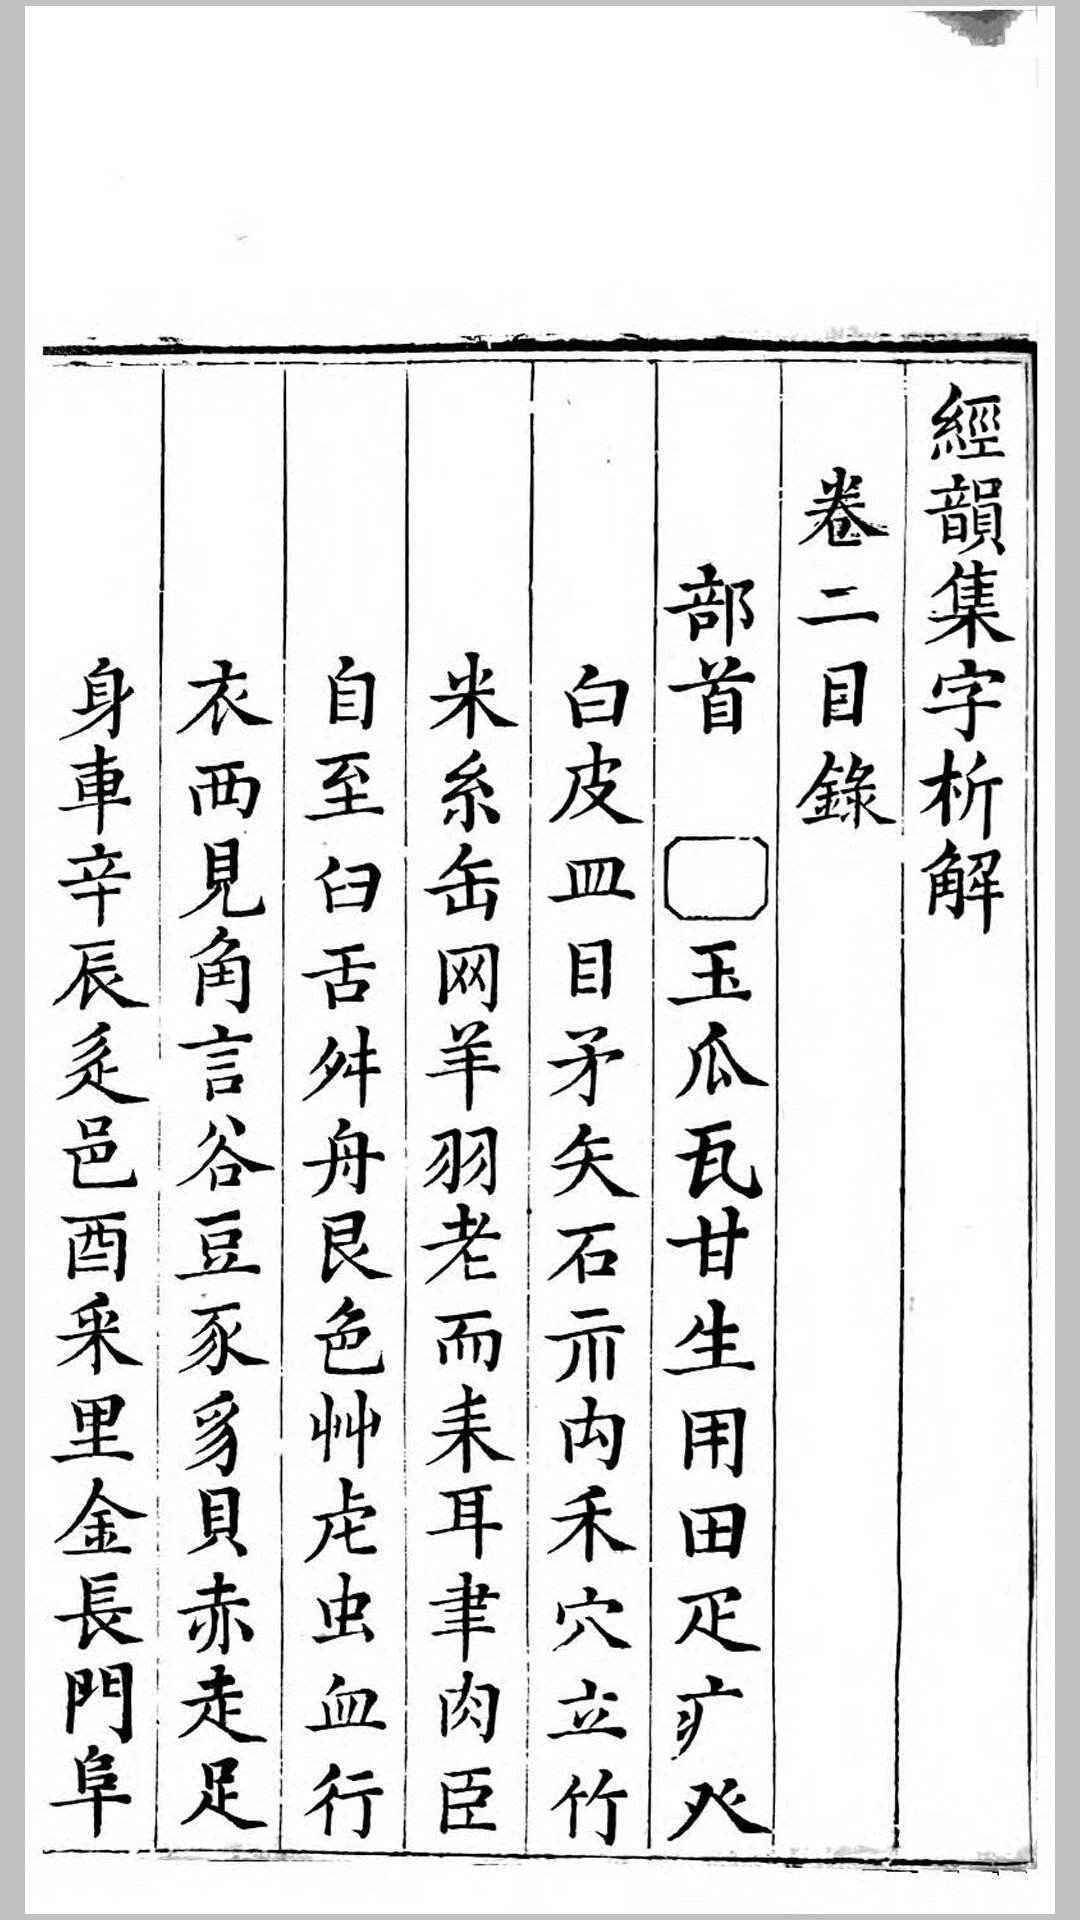 經韻集字析解
卷二目錄
部首 玉瓜瓦甘生用田疋疒癶
白皮皿目矛矢石示禸禾穴立竹
米糸缶网羊羽老而耒耳聿肉臣
自至臼舌舛舟艮色艸虍虫血行
衣襾見角言谷豆豕豸貝赤走足
身車辛辰辵邑酉釆里金長門阜